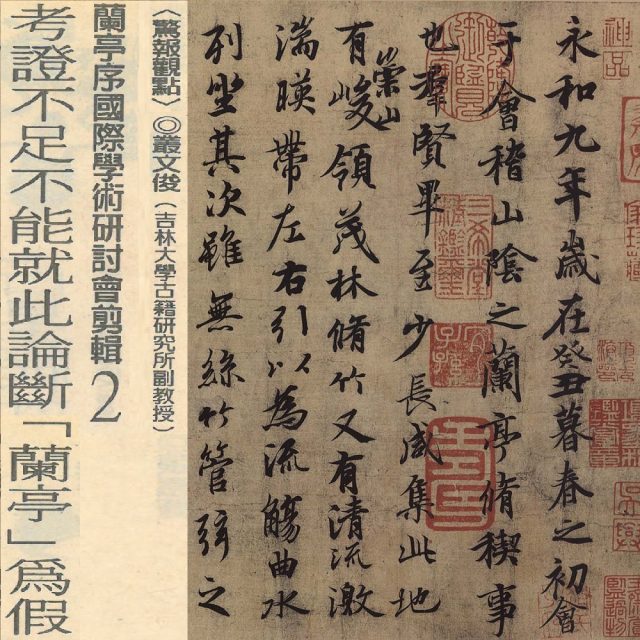 神品
永和九年歲在癸丑暮春之初會
于會稽山陰之蘭亭脩稧事
也羣賢畢至少長咸集此地
有崇山峻領茂林脩竹又有清流激
湍暎帶左右引以為流觴曲水
列坐其次雖無絲竹管弦之
〈驚報觀點〉◎叢文俊（吉林大學古籍研究所副教授）
蘭亭序國際學術研討會剪輯2
考證不足不能就此論斷「蘭亭」爲假